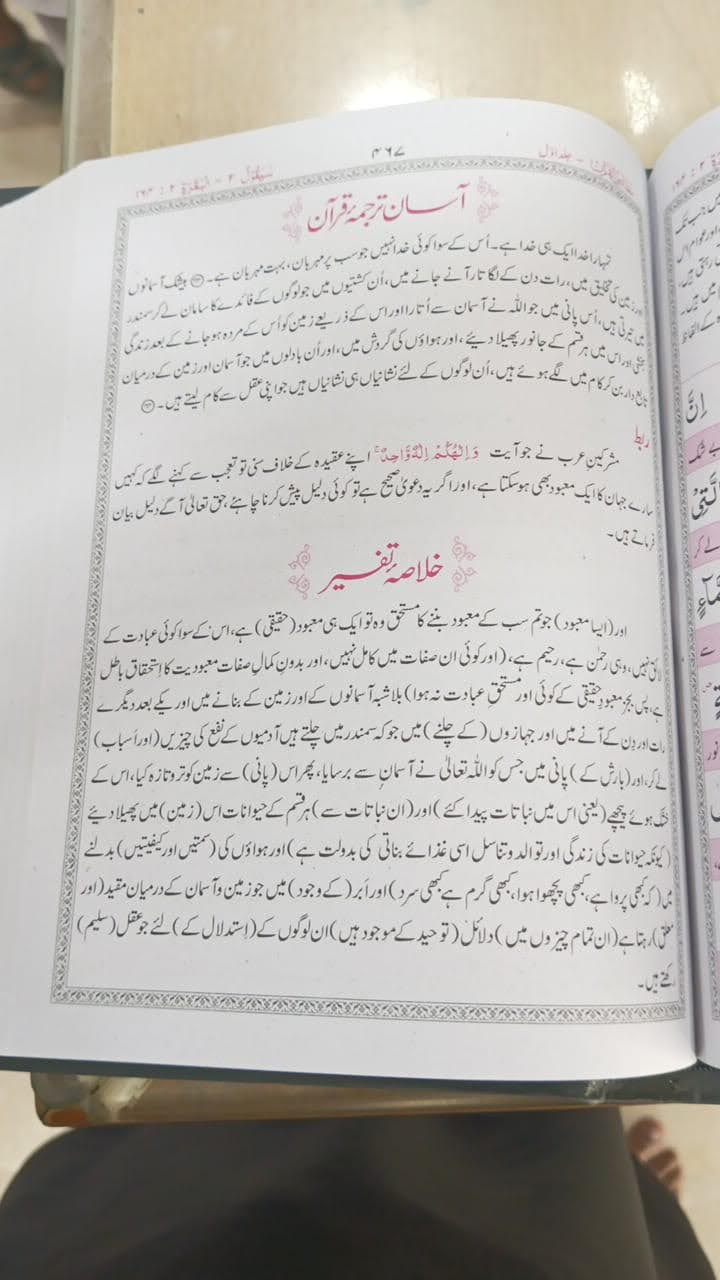 ۴۶۷
جلد اول
سَيَقُوۡلُ ۲ - البقرة ۲ : ۱۶۴
آسان ترجمۂ قرآن
تمہارا خدا ایک ہی خدا ہے۔ اُس کے سوا کوئی خدا نہیں جو سب پر مہربان، بہت مہربان ہے۔ ﴿۱۶۳﴾ بیشک آسمانوں
اور زمین کی تخلیق میں، رات دن کے لگاتار آنے جانے میں، اُن کشتیوں میں جو لوگوں کے فائدے کا سامان لے کر سمندر
میں تیرتی ہیں، اُس پانی میں جو اللہ نے آسمان سے اُتارا اور اس کے ذریعے زمین کو اُس کے مردہ ہو جانے کے بعد زندگی
بخشی اور اس میں ہر قسم کے جانور پھیلا دیئے، اور ہواؤں کی گردش میں، اور اُن بادلوں میں جو آسمان اور زمین کے درمیان
تابع دار بن کر کام میں لگے ہوئے ہیں، اُن لوگوں کے لئے نشانیاں ہی نشانیاں ہیں جو اپنی عقل سے کام لیتے ہیں۔ ﴿۱۶۴﴾
ربط
مشرکینِ عرب نے جو آیت وَاِلٰهُكُمْ اِلٰهٌ وَّاحِدٌ ۚ اپنے عقیدہ کے خلاف سنی تو تعجب سے کہنے لگے کہ کہیں
سارے جہان کا ایک معبود بھی ہو سکتا ہے، اور اگر یہ دعویٰ صحیح ہے تو کوئی دلیل پیش کرنا چاہئے، حق تعالیٰ آگے دلیل بیان
فرماتے ہیں۔
خلاصۂ تفسیر
اور (ایسا معبود) جو تم سب کے معبود بننے کا مستحق وہ تو ایک ہی معبود (حقیقی) ہے، اس کے سوا کوئی عبادت کے
لائق نہیں، وہی رحمٰن ہے، رحیم ہے، (اور کوئی ان صفات میں کامل نہیں، اور بدونِ کمالِ صفات معبودیت کا اِستحقاق باطل
ہے، پس بجز معبودِ حقیقی کے کوئی اور مستحقِ عبادت نہ ہوا) بلاشبہ آسمانوں کے اور زمین کے بنانے میں اور یکے بعد دیگرے
رات اور دِن کے آنے میں اور جہازوں (کے چلنے) میں جو کہ سمندر میں چلتے ہیں آدمیوں کے نفع کی چیزیں (اور اَسباب)
لے کر، اور (بارش کے) پانی میں جس کو اللہ تعالیٰ نے آسمان سے برسایا، پھر اس (پانی) سے زمین کو تر و تازہ کیا، اس کے
خشک ہوئے پیچھے (یعنی اس میں نباتات پیدا کئے) اور (ان نباتات سے) ہر قسم کے حیوانات اس (زمین) میں پھیلا دیئے
(کیونکہ حیوانات کی زندگی اور توالد و تناسل اسی غذائے بناتی کی بدولت ہے) اور ہواؤں کی (سمتیں اور کیفیتیں) بدلنے
میں (کہ کبھی پروا ہے، کبھی پچھوا ہوا، کبھی گرم ہے کبھی سرد) اور اَبر (کے وجود) میں جو زمین و آسمان کے درمیان مقید (اور
معلق) رہتا ہے (ان تمام چیزوں میں) دلائل (توحید کے موجود ہیں) ان لوگوں کے (اِستدلال کے) لئے جو عقل (سلیم)
رکھتے ہیں۔
اِنَّ
بے شک
الَّتِیْ
لے کر
سے